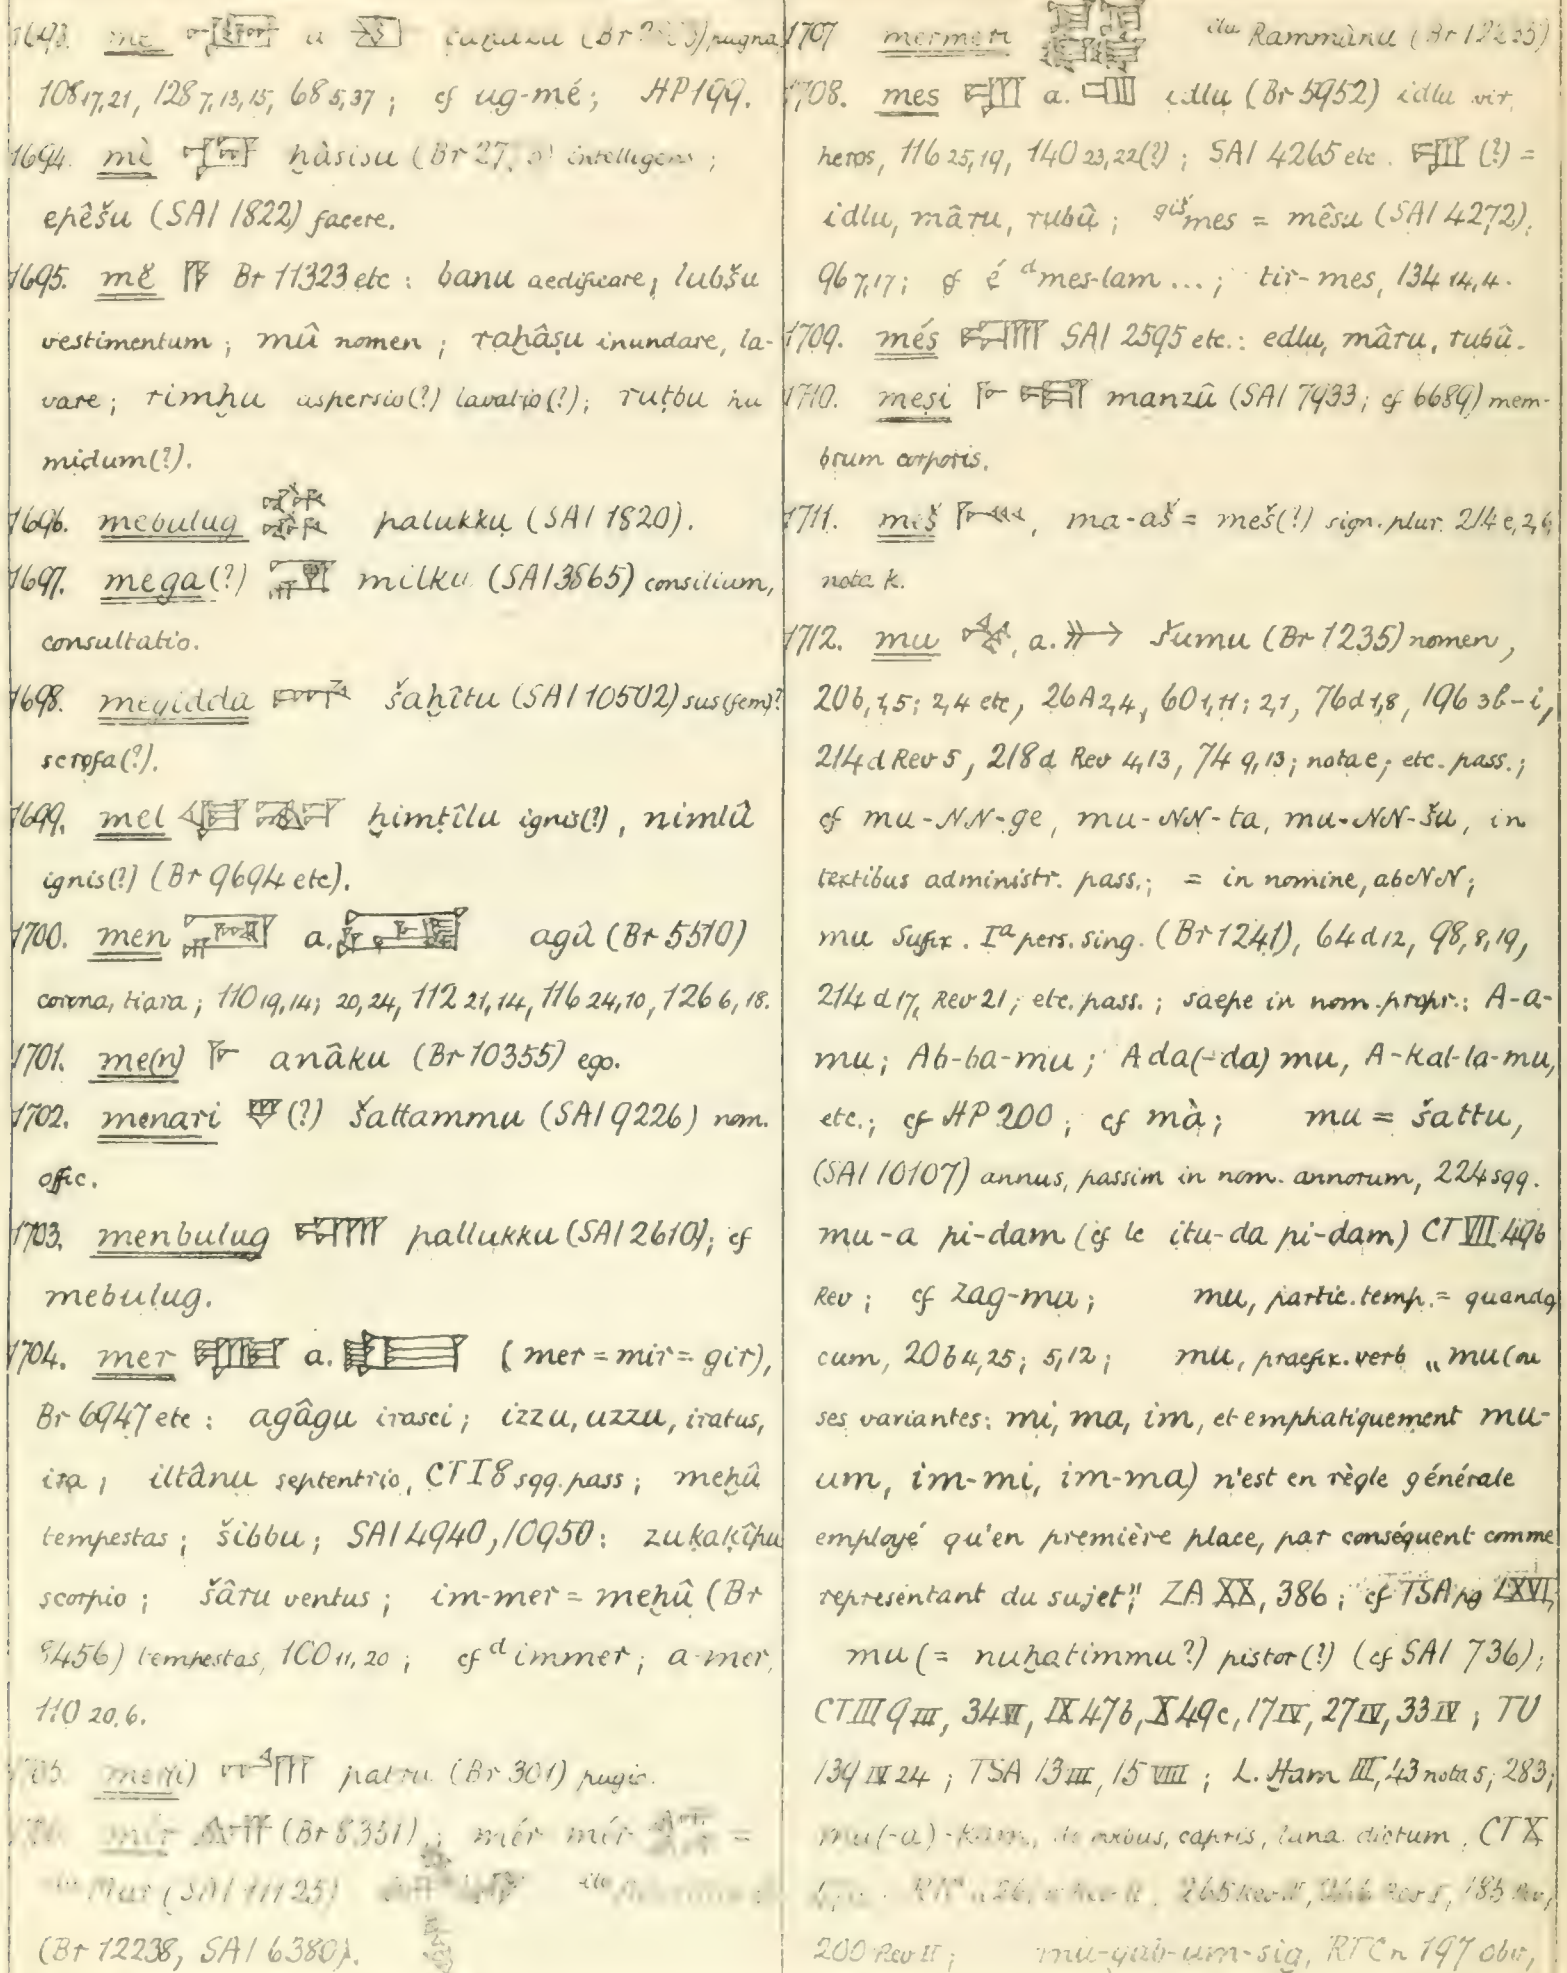 1693. me a tuḫuzu (Br ) pugna
108 17,21, 128 7,13,15, 68 5,37; cf ug-mé; HP 199.
1694. mì ḫâsisu (Br 27, ) intelligens;
epêšu (SAI 1822) facere.
1695. mĕ Br 11323 etc: banu aedificare, lubšu
vestimentum; mû nomen; raḫâṣu inundare, la-
vare; rimḫu aspersio(?) lavatio(?); ruṭbu hu
midum(?).
1696. mebulug palukku (SAI 1820).
1697. mega(?) milku (SAI 3865) consilium,
consultatio.
1698. megidda šaḫîtu (SAI 10502) sus (fem)?
scrofa(?).
1699. mel ḫimṭîlu ignis(?), nimlû
ignis(?) (Br 9694 etc).
1700. men a. agû (Br 5510)
corona, tiara; 110 19,14; 20,24, 112 21,14, 116 24,10, 126 6,18.
1701. me(n) anâku (Br 10355) ego.
1702. menari (?) šattammu (SAI 9226) nom.
offic.
1703. menbulug pallukku (SAI 2610); cf
mebulug.
1704. mer a. (mer = mir = gir),
Br 6947 etc: agâgu irasci; izzu, uzzu, iratus,
ira; iltânu septentrio, CT I 8 sqq. pass; meḫû
tempestas; šibbu; SAI 4940, 10950: zuḳaḳîpu
scorpio; šâru ventus; im-mer = meḫû (Br
8456) tempestas, 100 11,20; cf ᵈimmer; a-mer,
110 20,6.
1705. mer(i) patru (Br 301) pugio.
mér (Br 8351); mér mér =
Mur (SAI 11125)
(Br 12238, SAI 6380).
1707 mermeri ilu Rammânu (Br 12235)
1708. mes a. idlu (Br 5952) idlu vir,
heros, 116 25,19, 140 23,22(?); SAI 4265 etc. (?) =
idlu, mâru, rubû; giš mes = mêsu (SAI 4272),
96 7,17; cf é ᵈmes-lam ...; tir-mes, 134 14,4.
1709. més SAI 2595 etc.: edlu, mâru, rubû.
1710. meṣi manzû (SAI 7933; cf 6689) mem-
brum corporis.
1711. meš, ma-aš = meš(?) sign. plur. 214 e, 2,6
nota k.
1712. mu, a. šumu (Br 1235) nomen,
20b, 1,5; 2,4 etc, 26A 2,4, 60 1,11; 2,1, 76d 1,8, 196 3b-i,
214 d Rev 5, 218 d Rev 4,13, 74 9,13; nota e; etc. pass.;
cf mu-NN-ge, mu-NN-ta, mu-NN-šu, in
textibus administr. pass.; = in nomine, ab NN;
mu Sufix. Iᵃ pers. sing. (Br 1241), 64 d 12, 98, 8,19,
214 d 17, Rev 21; etc. pass.; saepe in nom. propr.: A-a-
mu; Ab-ba-mu; Ada(-da) mu, A-kal-la-mu,
etc.; cf HP 200; cf mà; mu = šattu,
(SAI 10107) annus, passim in nom. annorum, 224 sqq.
mu-a pi-dam (cf le itu-da pi-dam) CT VII 49b
Rev; cf zag-mu; mu, partic. temp. = quando
cum, 20b 4,25; 5,12; mu, praefix. verb „mu (ou
ses variantes: mi, ma, im, et emphatiquement mu-
um, im-mi, im-ma) n'est en règle générale
employé qu'en première place, par conséquent comme
représentant du sujet", ZA XX, 386; cf TSA pg LXVI,
mu (= nuḫatimmu?) pistor(?) (cf SAI 736);
CT III 9 III, 34 VI, IX 47b, X 49c, 17 IV, 27 IV, 33 IV; TU
139 IV 24; TSA 13 III, 15 VIII; L. Ham III, 43 nota 5; 283;
mu(-a)-kam, de ovibus, capris, lana dictum, CT X
265 Rev
200 Rev II; mu-gab-um-sig, RTC n 197 obv,